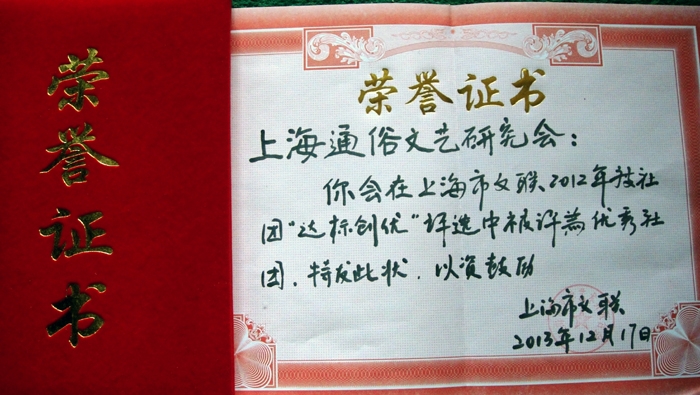 荣誉证书
荣誉证书
上海通俗文艺研究会：
你会在上海市文联2012年波社
团“达标创优”评选中被评为优秀社
团，特发此状，以资鼓励
上海市文联
2013年12月17日